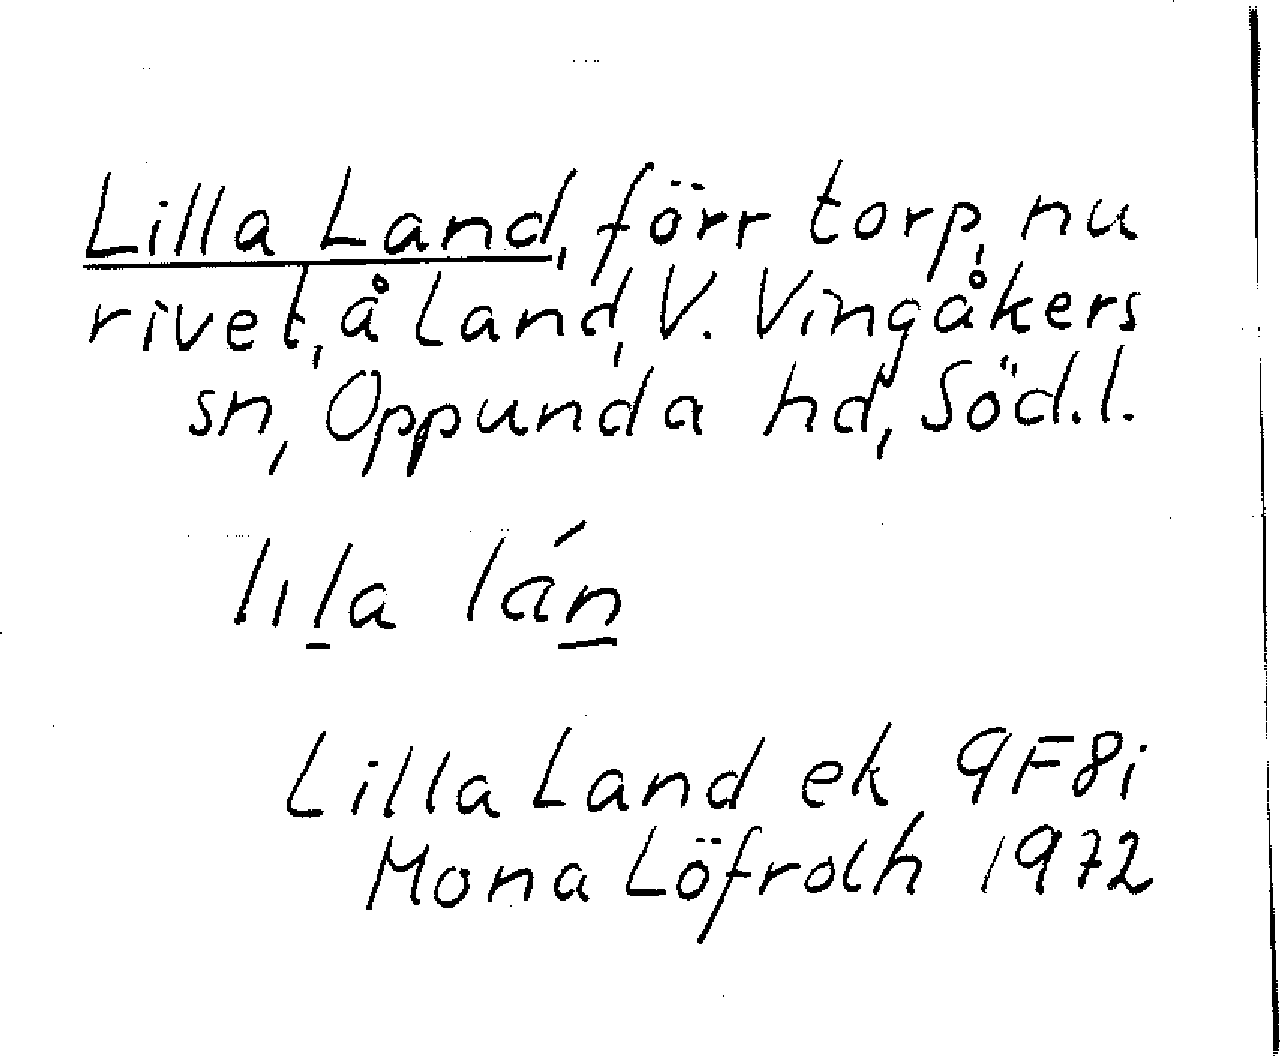 Lilla Land, förr torp, nu
rivet, å Land, V. Vingåkers
sn, Oppunda hd, Söd.l.
lıl̲a lán̲
Lilla Land ek 9F8i
Mona Löfroth 1972